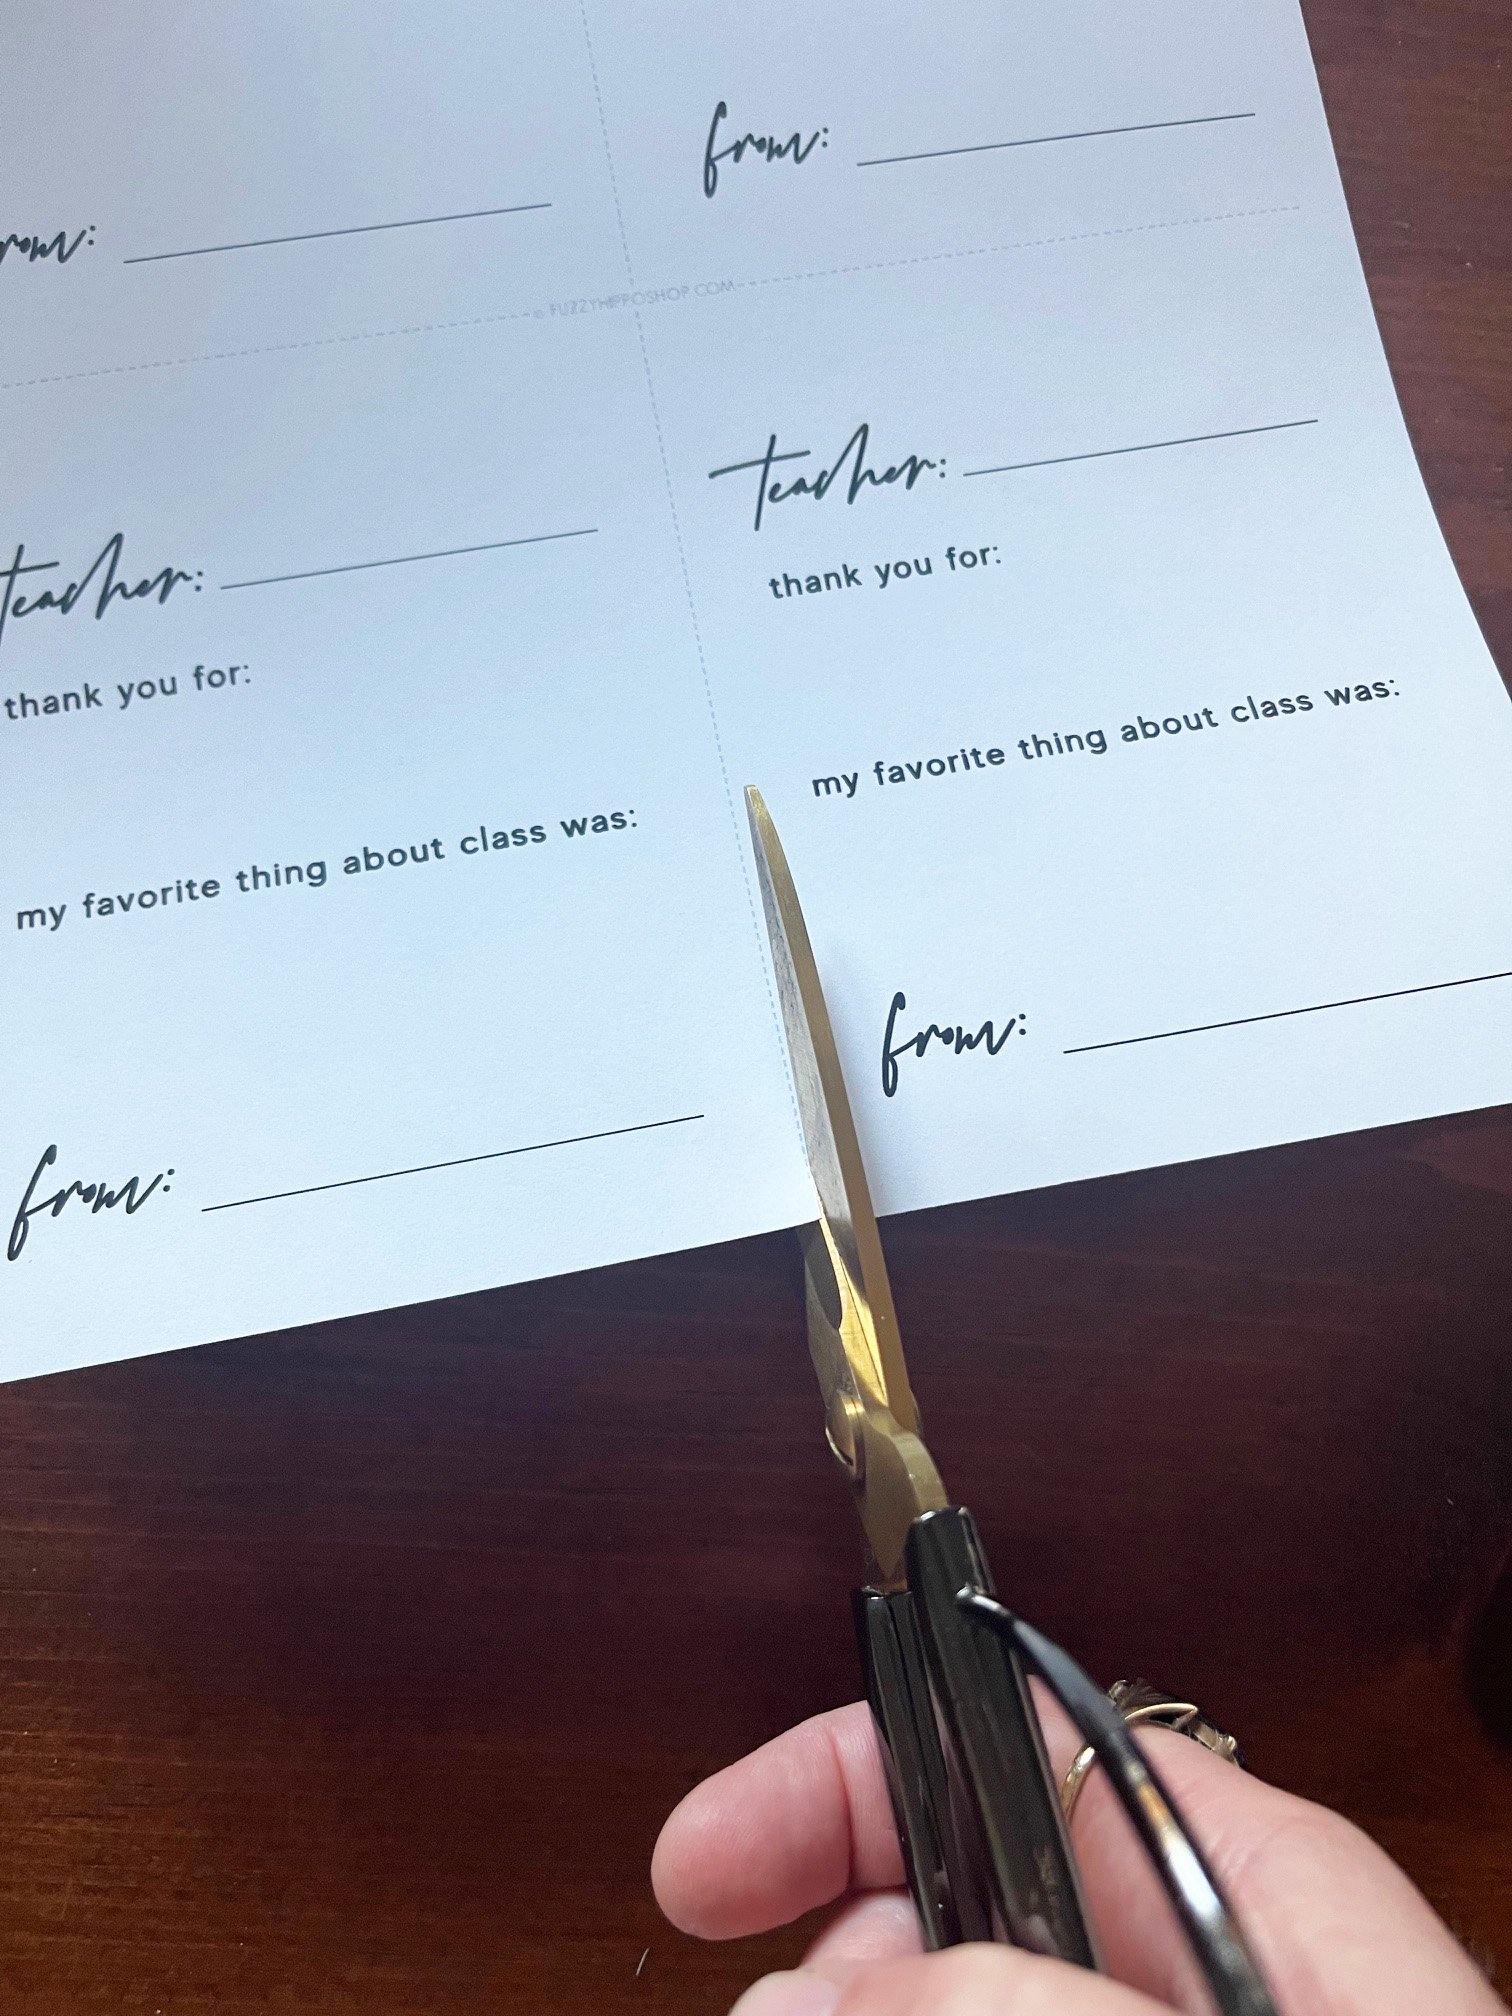 from:
from:
© FUZZYHIPPOSHOP.COM
teacher:
thank you for:
my favorite thing about class was:
from:
teacher:
thank you for:
my favorite thing about class was:
from: